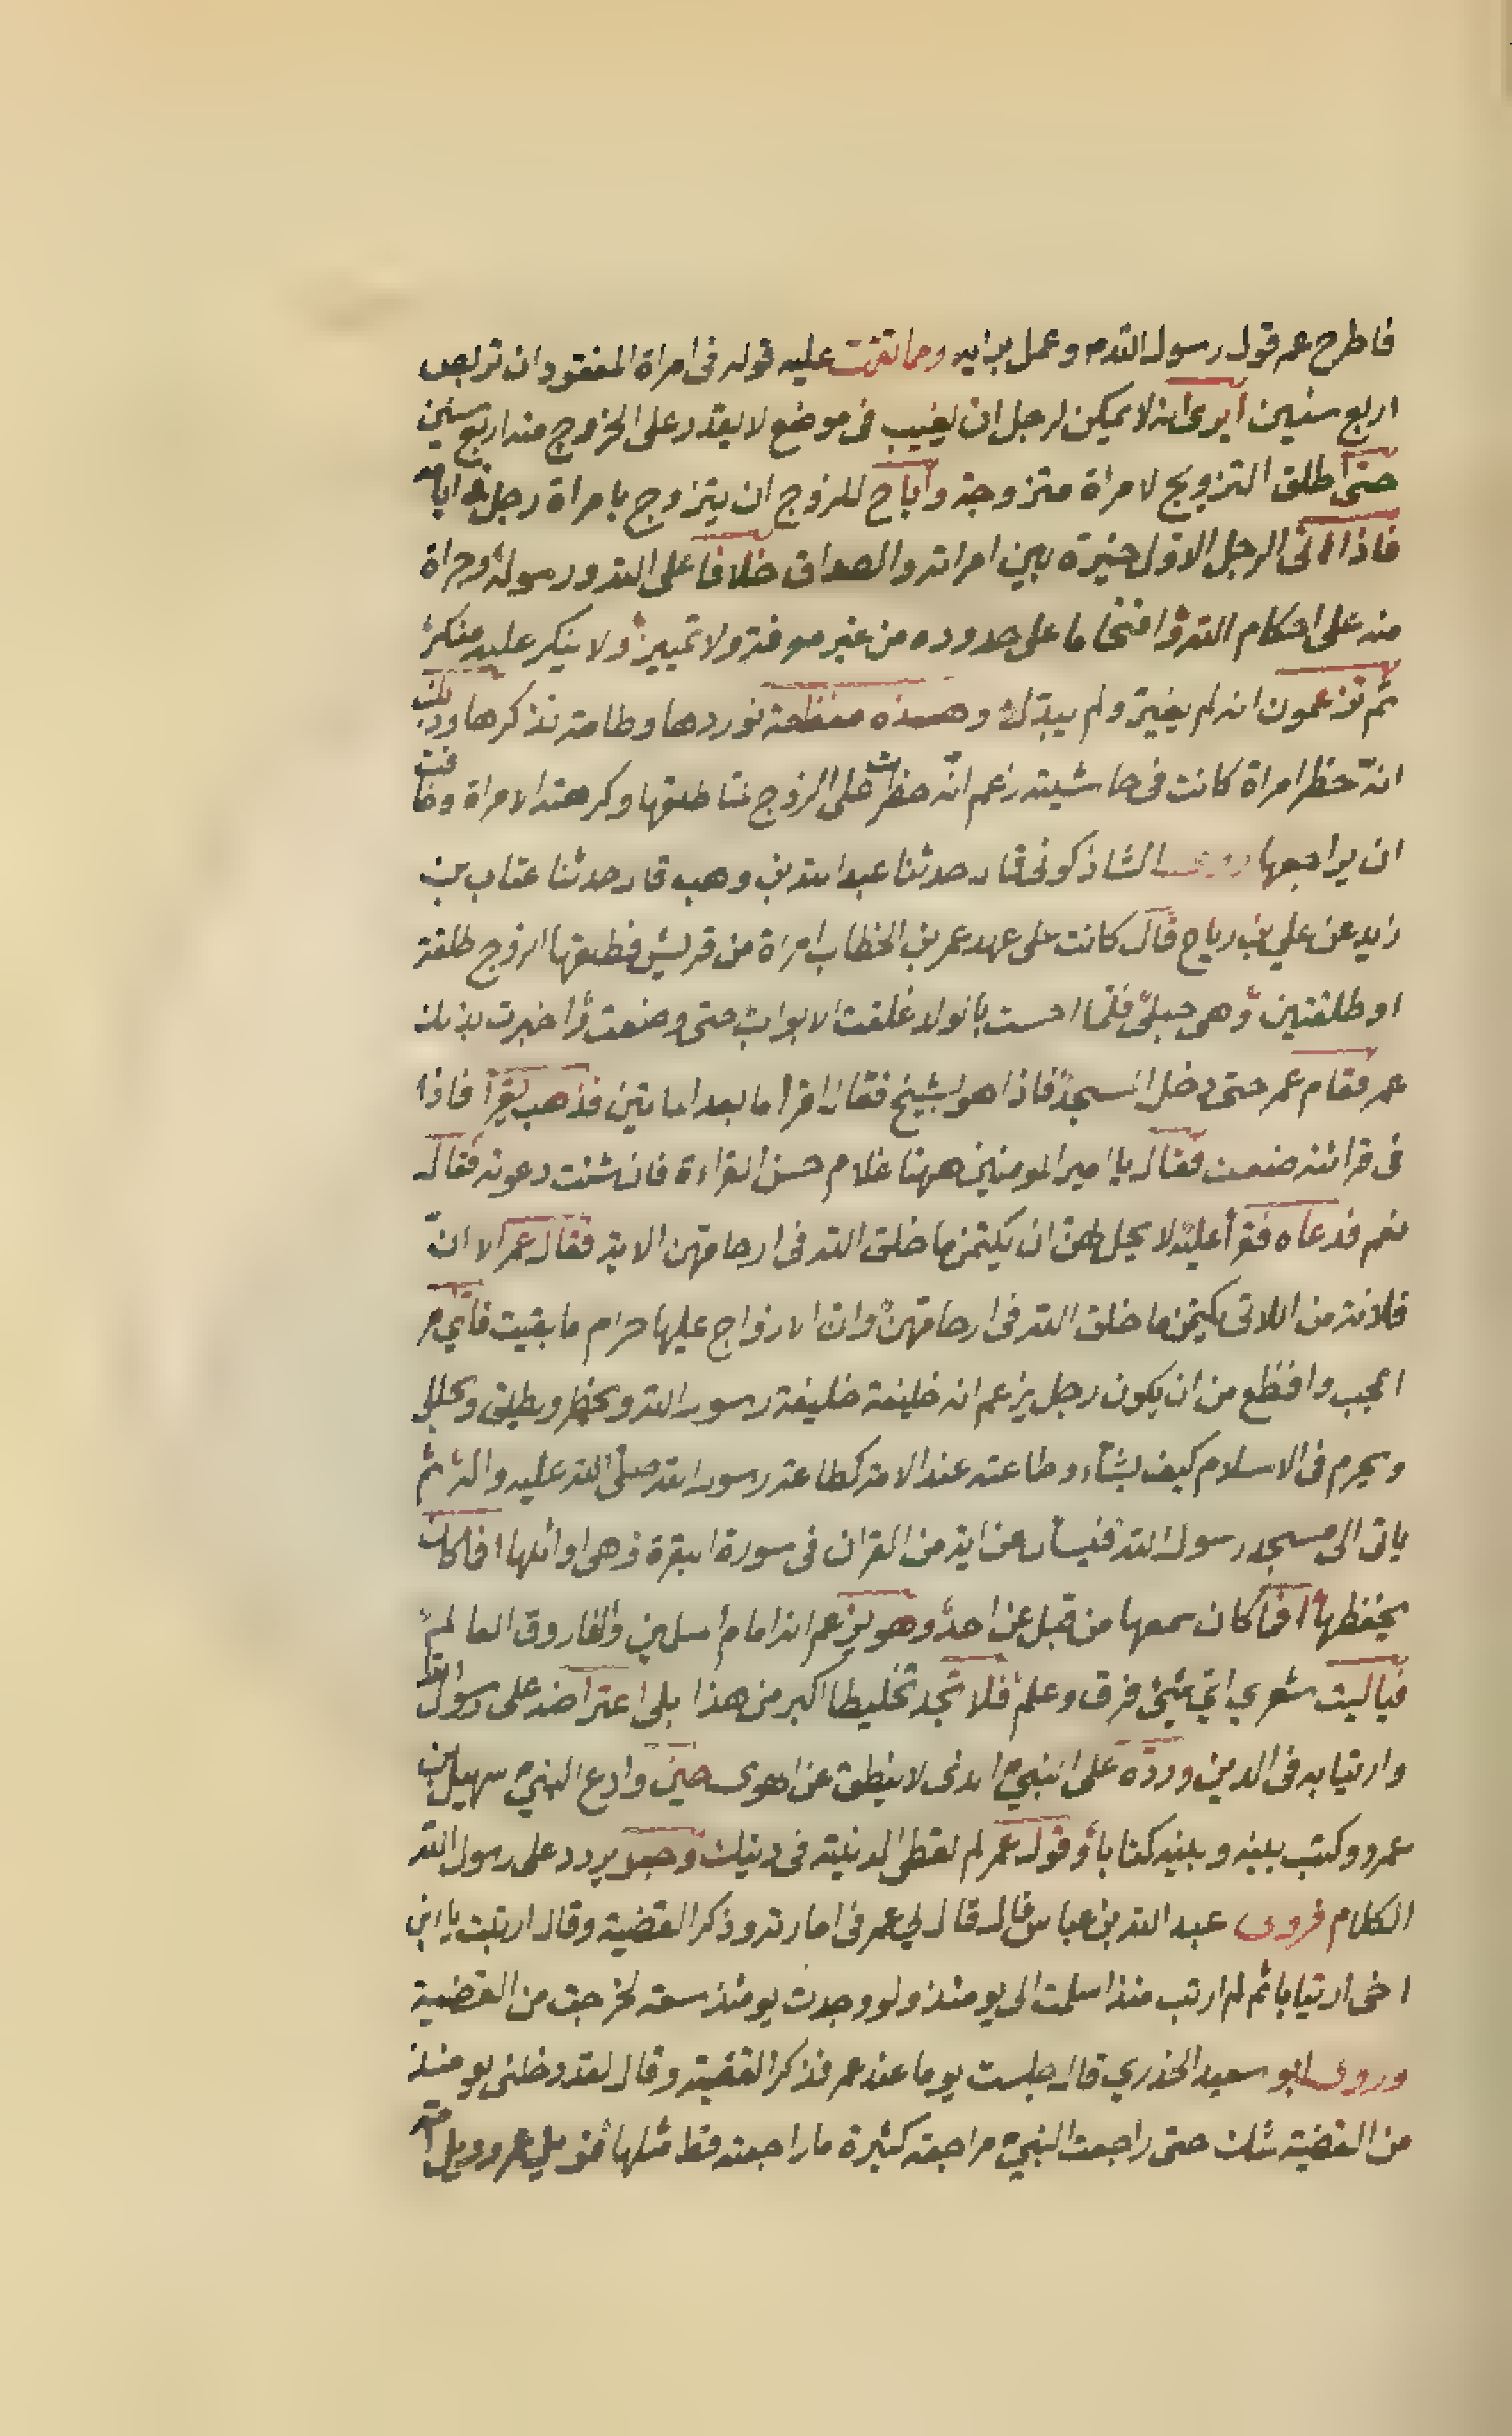 فاطرح عمر قول رسول الله م وعمل برايه ومما نقمت عليه قوله فى امراة المفقود ان تربص
اربع سنين ايرى انه لا يمكن لرجل ان يغيب فى موضع لا يقدر على الخروج منه اربع سنين
حتى اطلق التزويج لامراة متزوجة واباح للزوج ان يتزوج بامراة رجل
فاذا اتى الرجل الاول خيره بين امراته والصداق خلافا على الله ورسوله وجراة
منه على احكام الله واقتحاما على حدوده من غير معرفة ولا تمييز ولا ينكر عليه منكر
ثم تزعمون انه لم يغير ولم يبدل وهذه مفظعة نوردها وطامة نذكرها وذلك
انه حظر امراة كانت فى حاشيته زعم انه حظرت على الزوج لما طلقها وكرهته الامراة وخافت
ان يراجعها روى الشاذكونى قال حدثنا عبد الله بن وهب قال حدثنا عتاب بن
زيد عن علي بن رباح قال كانت على عهد عمر بن الخطاب امراة من قريش فطلقها الزوج طلقة
او طلقتين وهى حبلى فلما احست بالولد غلقت الابواب حتى وضعت واخبرت بذلك
عمر فقام عمر حتى دخل المسجد فاذا هو بشيخ فقال اقرا ما بعد المايتين فذهب يقرا فاذا
فى قرائته ضعف فقال يا امير المومنين ههنا غلام حسن القراءة فان شئت دعوته فقال
نعم فدعاه فقرأ عليه لا يحل لهن ان يكتمن ما خلق الله فى ارحامهن الاية فقال عمر الا ان
فلانة من اللاتى يكتمن ما خلق الله فى ارحامهن وان الازواج عليها حرام ما بقيت فأي امر
اعجب وافظع من ان يكون رجل يزعم انه خليفة خليفة رسول الله ويحظر ويطلق ويحلل
ويحرم فى الاسلام كيف يشاء وطاعته عند الامة كطاعة رسول الله صلى الله عليه واله ثم
ياتى الى مسجد رسول الله فيسأل عن اية من القران فى سورة البقرة وهى اوائلها افما كان
يحفظها افما كان سمعها من قبل عن احد وهو يزعم انه امام المسلمين والفاروق العالم
فيا ليت شعري اي شيئ فرق وعلم فلا تجد تخليطا اكبر من هذا بلى اعتراضه على رسول الله
وارتيابه فى الدين ورده على النبي م الذى لا ينطق عن الهوى حين وادع النبي م سهيل بن
عمرو وكتب بينه وبينه كتابا وقول عمر لم نعطى الدنية فى دينك وجعل يردد على رسول الله
الكلام فروى عبد الله بن عباس قال قال لي عمر فى امارته وذكر القضية وقال ارتبت يا ابن
اخى ارتيابا ثم لم ارتب منذ اسلمت الى يومئذ ولو وجدت يومئذ سعة لخرجت من القضية
وروى ابو سعيد الخدري قال جلست يوما عند عمر فذكر القضية وقال لقد دخلنى يومئذ
من القضية شك حتى راجعت النبي م مراجعة كثيرة ما راجعته قط مثلها فويل عمر وويل امه